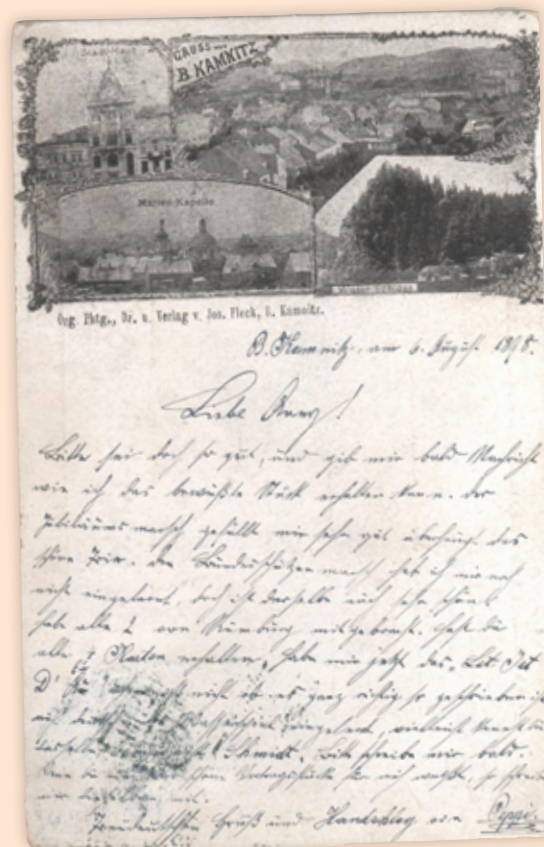 Stadt-Haus
GRUSS aus
B. KAMNITZ
Marien-Kapelle
Org. Phtg., Dr. u. Verlag v. Jos. Fleck, B. Kamnitz.
B. Kamnitz, am 6. August 1898.
Liebe
Bitte sei doch so gut, und gib mir bald Nachricht
wie ich das bewußte Stück erhalten kann. der
Jubiläumsmarsch gefällt mir sehr gut überhaupt das
schöne Trio. den Bundesschützenmarsch hab ich mir noch
nicht eingelernt, doch ist derselbe auch sehr schön
habe alle 2 von Rumburg mitgebracht. hast du
alle Karten erhalten, habe mir jetzt das
nicht ob es ganz richtig so geschrieben ist
eingelernt, vielleicht kennst du
Bitte schreibe mir bald.
Vortragsstücke für mich so schreibe
mir mit.
Treudeutschen Gruß und Handschlag von